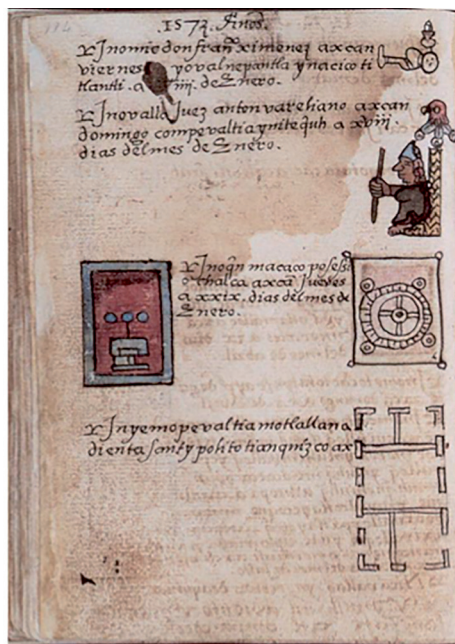 1573. Años.
Inomic don franco ximenez axcan
viernes yovalnepantla ynacico ti
tlantli. a iiij. de Enero.
Inovalla Juez anton vareliano axcan
domingo compevaltia ynitequh a xviij.
dias del mes de Enero.
macaco posesio
chalca axcā Jueves
a xxix. dias del mes de
Enero.
Inyemopevaltia motlallana
dienta sant ypolito tianquizco ax